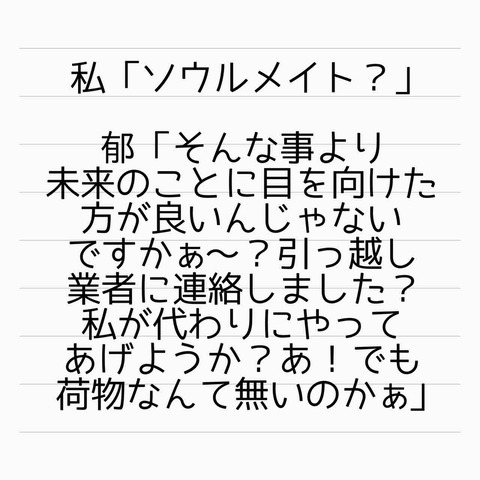 私「ソウルメイト?」
郁「そんな事より
未来のことに目を向けた
方が良いんじゃない
ですかぁ〜?引っ越し
業者に連絡しました?
私が代わりにやって
あげようか?あ!でも
荷物なんて無いのかぁ」